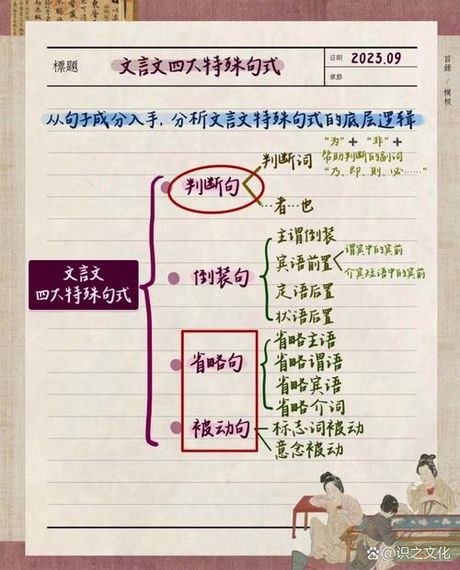 標題
文言文四大特殊句式
日期
2023.09
章節
目錄 / 模板
从句子成分入手，分析文言文特殊句式的底层逻辑
“为”+ “非”+
判断词
帮助判断的副词
“乃、即、则、必……”
判断句
…者…也
主谓倒装
宾语前置
谓宾中的宾前
介宾短语中的宾前
倒装句
定语后置
状语后置
文言文
四大特殊句式
省略主语
省略句
省略谓语
省略宾语
省略介词
被动句
标志词被动
意念被动
Bai百度 @识之文化